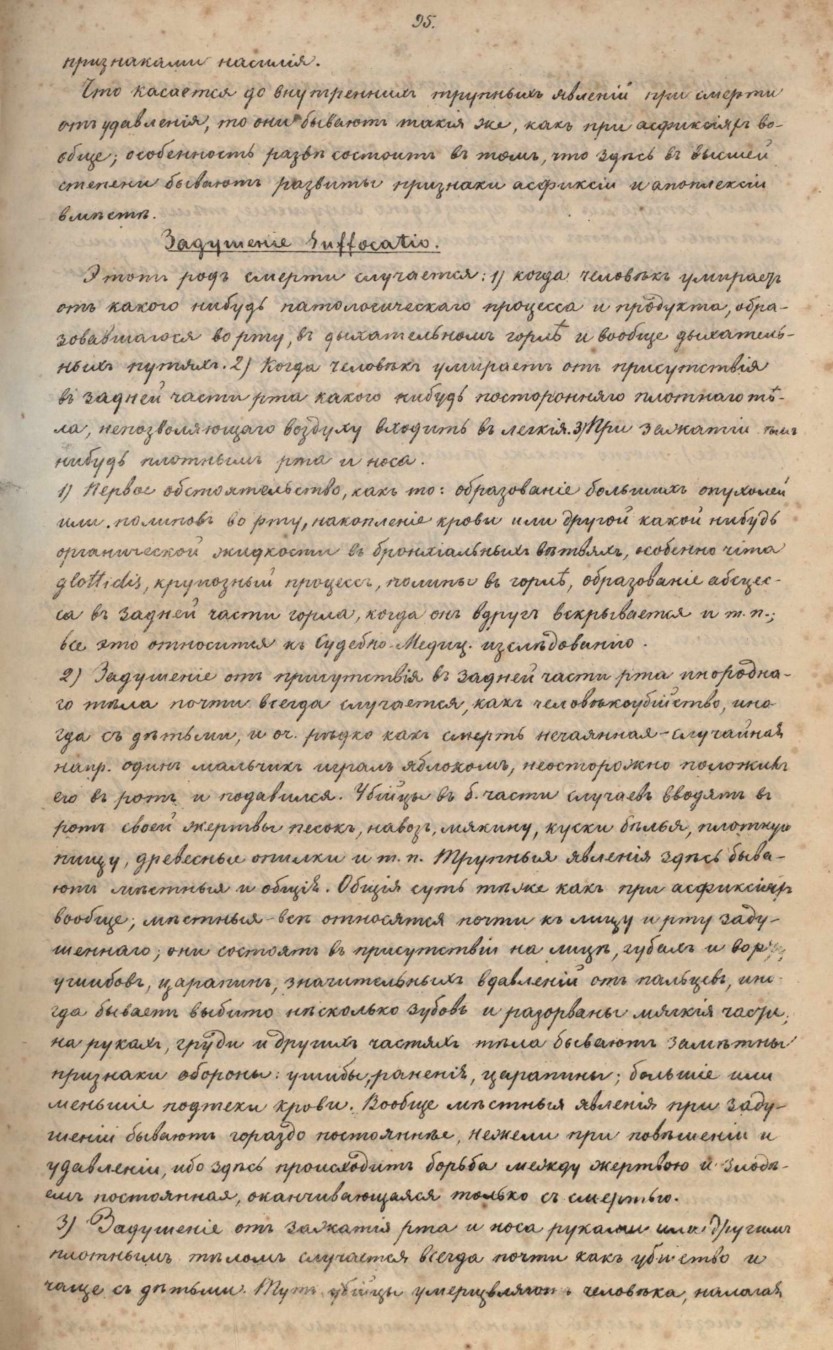 95.
признаками насилія.
Что касается до внутреннихъ трупныхъ явленій при смерти
отъ удавленія, то они бываютъ такія же, какъ при асфиксіяхъ во-
обще; особенность развѣ состоитъ въ томъ, что здѣсь въ высшей
степени бываютъ развиты признаки асфиксіи и апоплексіи
вмѣстѣ.
Задушеніе Suffocatio.
Этотъ родъ смерти случается: 1) когда человѣкъ умираетъ
отъ какого нибудь патологическаго процесса и продукта, обра-
зовавшагося во рту, въ дыхательномъ горлѣ и вообще дыхатель-
ныхъ путяхъ. 2) Когда человѣкъ умираетъ отъ присутствія
въ задней части рта какого нибудь посторонняго плотнаго тѣ-
ла, непозволяющаго воздуху входить въ легкія. 3) При зажатіи чѣмъ
нибудь плотнымъ рта и носа.
1) Первое обстоятельство, какъ то: образованіе большихъ опухолей
или полиповъ во рту, накопленіе крови или другой какой нибудь
органической жидкости въ бронхіальныхъ вѣтвяхъ, особенно rima
glottidis, крупозный процессъ, полипы въ горлѣ, образованіе абсцес-
са въ задней части горла, когда онъ вдругъ вскрывается и т. п.;
все это относится къ Судебно-Медиц. изслѣдованію.
2) Задушеніе отъ присутствія въ задней части рта инородна-
го тѣла почти всегда случается, какъ человѣкоубійство, ино-
гда съ дѣтьми, и оч. рѣдко какъ смерть нечаянная-случайная
напр. одинъ мальчикъ игралъ яблокомъ, неосторожно положилъ
его въ ротъ и подавился. Убійцы въ б. части случаевъ вводятъ въ
ротъ своей жертвы песокъ, навозъ, мякину, куски бѣлья, плотную
пищу, древесные опилки и т. п. Трупныя явленія здѣсь быва-
ютъ мѣстныя и общія. Общія суть тѣже какъ при асфиксіяхъ
вообще; мѣстныя всѣ относятся почти къ лицу и рту заду-
шеннаго; они состоятъ въ присутствіи на лицѣ, губахъ и во рту
ушибовъ, царапинъ, значительныхъ вдавленій отъ пальцевъ, ино-
гда бываетъ выбито нѣсколько зубовъ и разорваны мягкія части;
на рукахъ, груди и другихъ частяхъ тѣла бываютъ замѣтны
признаки обороны: ушибы, раненія, царапины; большіе или
меньшіе подтеки крови. Вообще мѣстныя явленія при заду-
шеніи бываютъ гораздо постояннѣе, нежели при повѣшеніи и
удавленіи, ибо здѣсь происходитъ борьба между жертвою и злодѣ-
емъ постоянная, оканчивающаяся только съ смертью.
3) Задушеніе отъ зажатія рта и носа руками или другимъ
плотнымъ тѣломъ случается всегда почти какъ убійство и
чаще съ дѣтьми. Тутъ убійцы умерщвляютъ человѣка, налагая